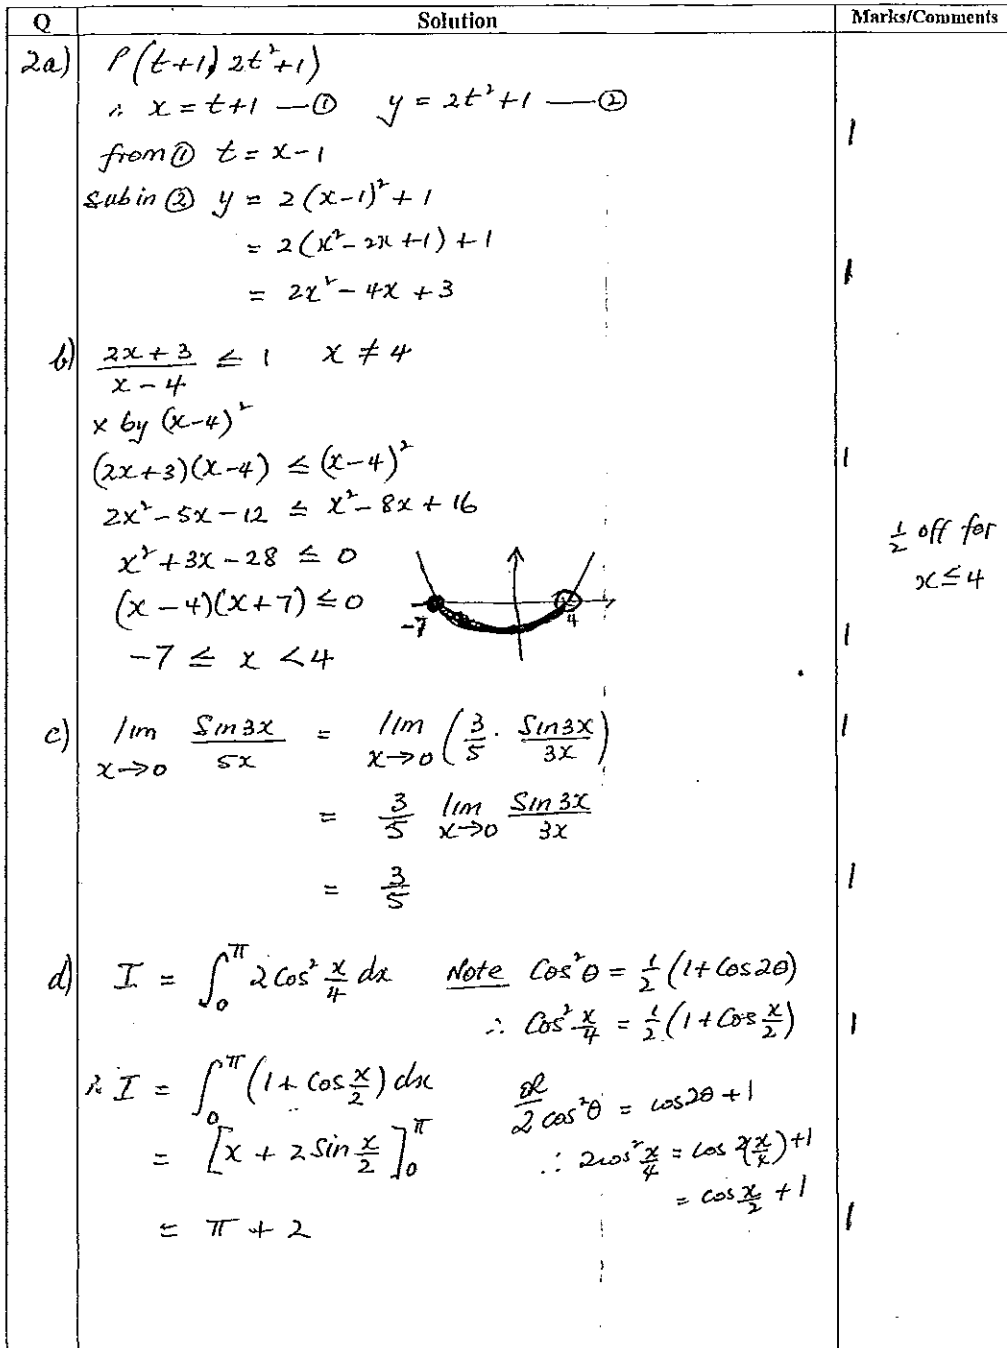 Q Solution Marks/Comments
2a) P(t+1, 2t²+1)
∴ x = t+1 —① y = 2t²+1 —②
1
from ① t = x-1
sub in ② y = 2(x-1)² + 1
= 2(x²-2x+1)+1
1
= 2x² - 4x + 3
b) (2x+3)/(x-4) ≤ 1 x ≠ 4
× by (x-4)²
(2x+3)(x-4) ≤ (x-4)² 1
2x²-5x-12 ≤ x²-8x+16
½ off for
x² + 3x - 28 ≤ 0
x ≤ 4
(x-4)(x+7) ≤ 0 -7 4
1
-7 ≤ x < 4
c) lim x→0 Sin3x/5x = lim x→0 (3/5 · Sin3x/3x) 1
= 3/5 lim x→0 Sin3x/3x
= 3/5 1
d) I = ∫₀^π 2Cos² x/4 dx Note Cos²θ = ½(1+Cos2θ)
∴ Cos² x/4 = ½(1+Cos x/2) 1
∴ I = ∫₀^π (1+Cos x/2) dx OR 2cos²θ = cos2θ+1
= [x + 2Sin x/2]₀^π ∴ 2cos² x/4 = cos 2(x/4)+1
= cos x/2 + 1
= π + 2 1